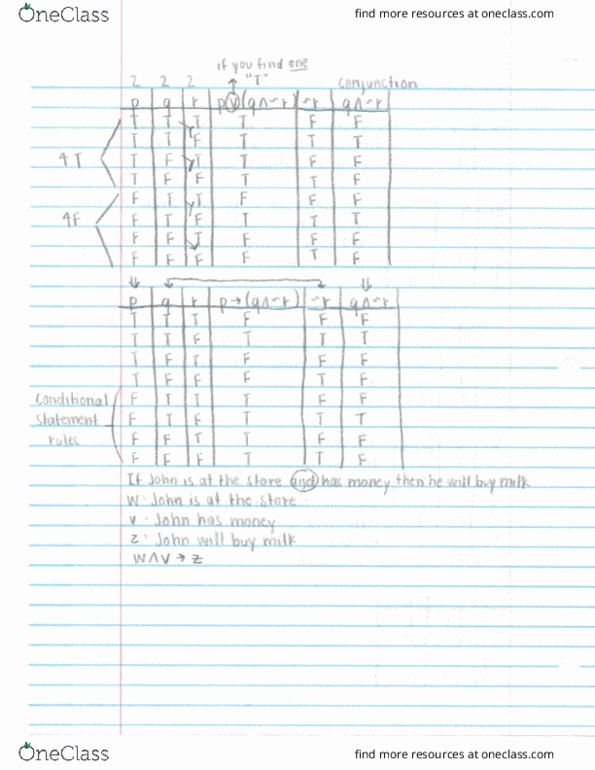 OneClass find more resources at oneclass.com
if you find one
2 2 2 "T" conjunction
p q r p∨(q∧~r) ~r q∧~r
T T T T F F
T T F T T T
4T T F T T F F
T F F T T F
F T T F F F
4F F T F T T T
F F T F F F
F F F F T F
p q r p→(q∧~r) ~r q∧~r
T T T F F F
T T F T T T
T F T F F F
T F F F T F
Conditional F T T T F F
statement F T F T T T
rules F F T T F F
F F F T T F
If John is at the store and has money then he will buy milk
W: John is at the store
V: John has money
Z: John will buy milk
W∧V → Z
OneClass find more resources at oneclass.com